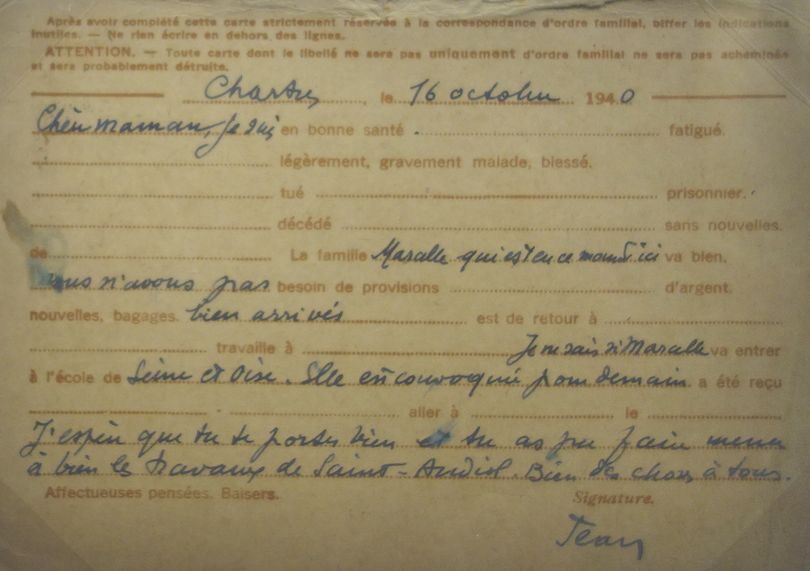 Après avoir complété cette carte strictement réservée à la correspondance d'ordre familial, biffer les indications
inutiles. — Ne rien écrire en dehors des lignes.
ATTENTION. — Toute carte dont le libellé ne sera pas uniquement d'ordre familial ne sera pas acheminée
et sera probablement détruite.
Chartres, le 16 octobre 1940
Chère maman, je suis en bonne santé fatigué.
légèrement, gravement malade, blessé.
tué prisonnier.
décédé sans nouvelles.
de La famille Maralle qui est en ce moment ici va bien.
nous n'avons pas besoin de provisions d'argent.
nouvelles, bagages. bien arrivés est de retour à
travaille à Je ne sais si Maralle va entrer
à l'école de Seine et Oise. Elle est convoquée pour demain. a été reçu
aller à le
J'espère que tu te portes bien et tu as pu faire mener
à bien les travaux de Saint-Andiol. Bien des choses à tous.
Affectueuses pensées. Baisers. Signature.
Jean